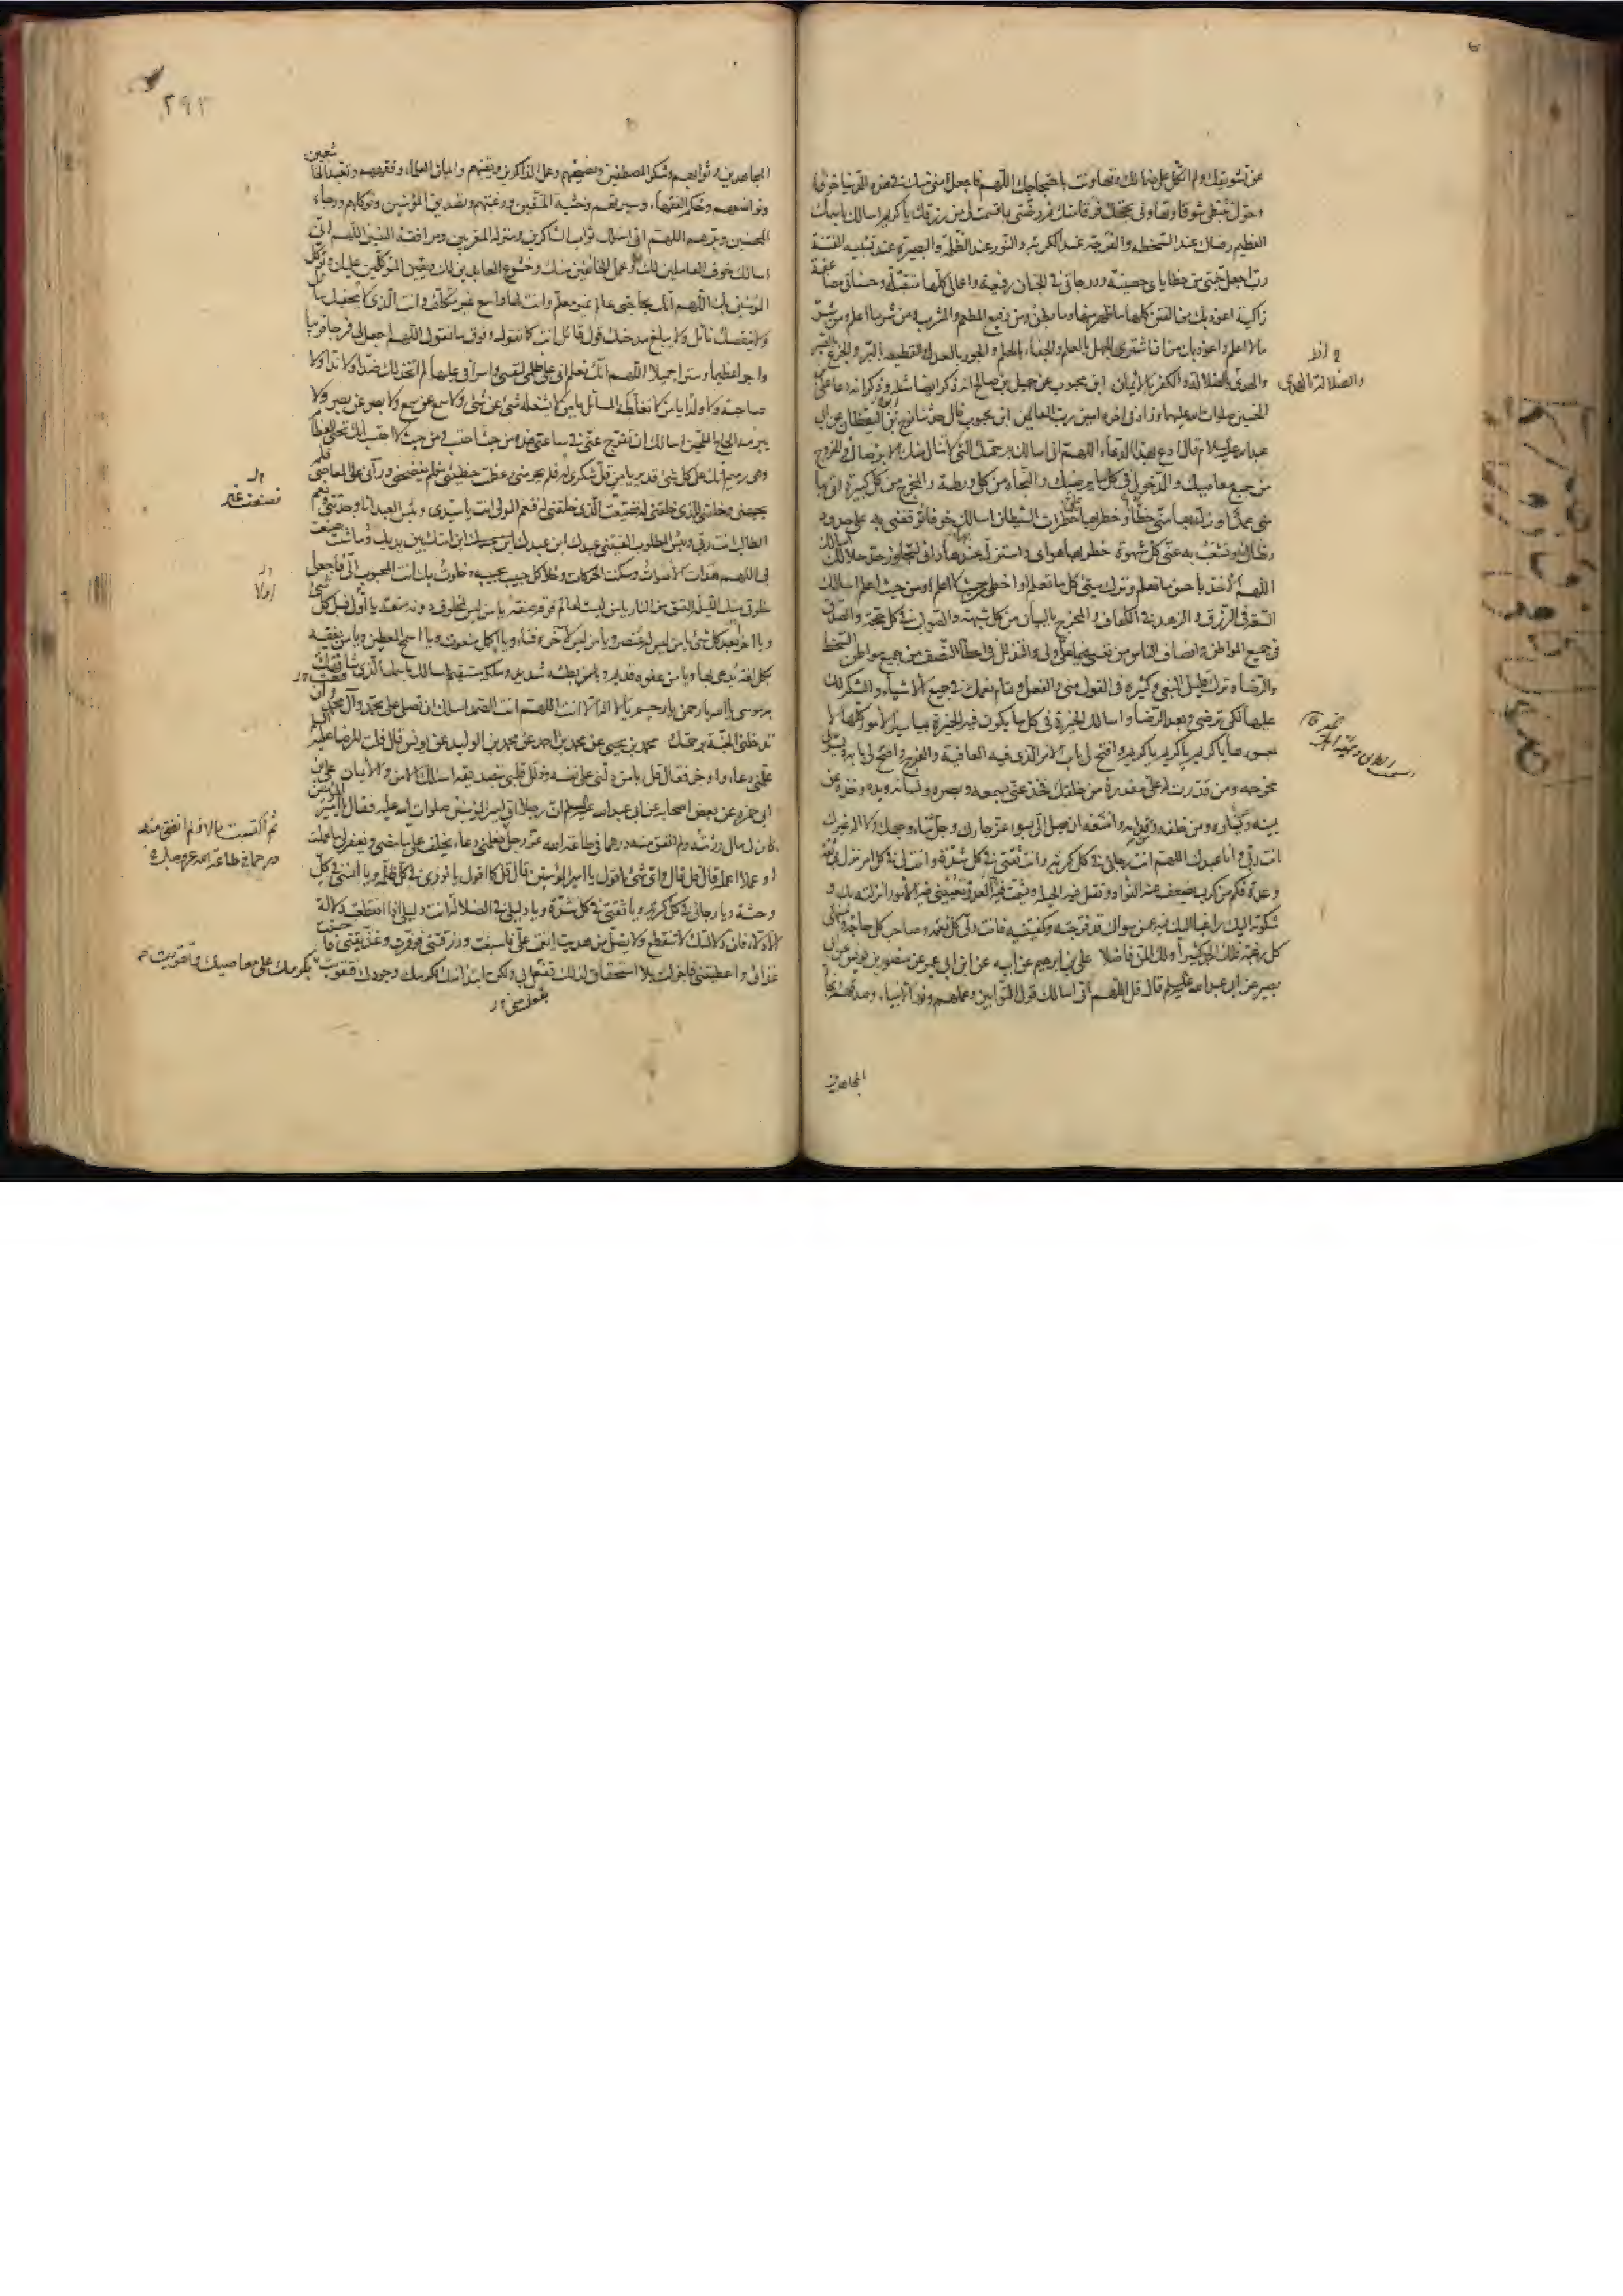 عن تشويقك ولم اتكل على ضمانك وتهاونت باحتجاجك اللهم فاجعل امنى منك فى هذه الدنيا خوفا
وحول تثبطى شوقا وتهاونى بحجتك فرقا منك ثم رضنى بما قسمت لى من رزقك يا كريم اسالك باسمك
العظيم رضاك عند السخطة والفرجة عند الكربة والنور عند الظلمة والبصيرة عند تشبيه الفتنة
رب اجعل جنتى من خطاياى حصينة ودرجاتى فى الجنان رفيعة واعمالى كلها متقبلة وحسناتى مضاعفة
زاكية اعوذ بك من الفتن كلها ما ظهر منها وما بطن ومن رفيع المطعم والمشرب ومن شر ما اعلم ومن شر
ما لا اعلم واعوذ بك من ان اشترى الجهل بالعلم والجفاء بالحلم والجور بالعدل القطيعة بالبر والجزع بالصبر
والهدى بالضلالة والكفر بالايمان ابن محبوب عن جميل بن صالح انه ذكر ايضا مثله وذكر انه دعاء على بن
والضلالة بالهدى
الحسين صلوات الله عليهما وزاد فى آخره امين رب العالمين ابن محبوب قال حدثنا نوح ابو اليقظان عن ابى
عبد الله عليه السلام قال ادع بهذا الدعاء اللهم انى اسالك برحمتك التى لا تنال منك الا برضاك والخروج
من جميع معاصيك والدخول فى كل ما يرضيك والنجاة من كل ورطة والمخرج من كل كبيرة اتى بها
منى عمد او زل بها منى خطأ او خطر بها خطرات الشيطان اسالك خوفا توقفنى به على حدود
رضاك وتشعب به عنى كل شهوة خطر بها هواى واستزل عندها رأى ليجاوز حد حلالك اسالك
اللهم الاخذ باحسن ما تعلم وترك سيئ كل ما تعلم او اخطى من حيث لا اعلم او من حيث اعلم اسالك
السعة فى الرزق والزهد فى الكفاف والمخرج بالبيان من كل شبهة والصواب فى كل حجة والصدق
فى جميع المواطن وانصاف الناس من نفسى فيما على ولى والتذلل فى اعطاء النصف من جميع مواطن السخط
والرضا وترك قليل البغى وكثيره فى القول منى والفعل وتمام نعمتك فى جميع الاشياء والشكر لك
عليها لكى ترضى وبعد الرضا واسالك الخيرة فى كل ما يكون فيه الخيرة بميسور الامور كلها لا
بمعسورها يا كريم يا كريم يا كريم وافتح لى باب الامر الذى فيه العافية والفرج وافتح لى بابه ويسر لى
مخرجه ومن قدرت له على مقدرة من خلقك فخذ عنى بسمعه وبصره ولسانه ويده وخذه عن
يمينه وعن يساره ومن خلفه ومن قدامه وامنعه ان يصل الى بسوء عز جارك وجل ثناء وجهك ولا اله غيرك
انت ربى وانا عبدك اللهم انت رجائى فى كل كربة وانت ثقتى فى كل شدة وانت لى فى كل امر نزل بى ثقة
وعدة فكم من كرب يضعف عنه الفؤاد وتقل فيه الحيلة ويشمت فيه العدو وتعيينى فيه الامور انزلته بك و
شكوته اليك راغبا اليك فيه عمن سواك قد فرجته وكفيتنيه فانت ولى كل نعمة وصاحب كل حاجة ومنتهى
كل رغبة فلك الحمد كثيرا ولك المن فاضلا على بن ابرهيم عن ابيه عن ابن ابى عمير عن منصور بن يونس عن ابى
بصير عن ابى عبد الله عليه السلام قال قل اللهم انى اسالك قول التوابين وعملهم ونور الانبياء وصدقهم ونجاة
المجاهدين
٢٩٣
المجاهدين وثوابهم وشكر المصطفين ونصيحتهم وعمل الذاكرين ويقينهم وايمان العلماء وفقههم وتعبد الخاشعين
وتواضعهم وحكم الفقهاء وسيرتهم وخشية المتقين ورغبتهم وتصديق المؤمنين وتوكلهم ورجاء
المحسنين وبرهم اللهم انى اسالك ثواب الشاكرين ومنزلة المقربين ومرافقة النبيين اللهم انى
اسالك خوف العاملين لك وعمل الخائفين منك وخشوع العابدين لك ويقين المتوكلين عليك وتوكل
المؤمنين بك اللهم انك بحاجتى عالم غير معلم وانت لها واسع غير متكلف وانت الذى لا يحفيك سائل
ولا ينقصك نائل ولا يبلغ مدحتك قول قائل انت كما تقول وفوق ما نقول اللهم اجعل لى فرجا قريبا
واجرا عظيما وسترا جميلا اللهم انك تعلم انى على ظلمى لنفسى واسرافى عليها لم اتخذ لك ضدا ولا ندا ولا
صاحبة ولا ولدا يا من لا تغلطه المسائل يا من لا يشغله شئ عن شئ ولا سمع عن سمع ولا بصر عن بصر ولا
يبرمه الحاح الملحين اسالك ان تفرج عنى فى ساعتى هذه من حيث احتسب ومن حيث لا احتسب انك تحيى العظام
وهى رميم انك على كل شئ قدير يا من قل شكرى له فلم يحرمنى وعظمت خطيئتى فلم يفضحنى ورآنى على المعاصى فلم
يجبهنى وخلقنى للذى خلقنى له فصنعت غير الذى خلقنى له فنعم المولى انت يا سيدى وبئس العبد انا وجدتنى ونعم
فصنعت غير
الطالب انت ربى وبئس المطلوب الفيتنى عبدك ابن عبدك ابن امتك بين يديك ما شئت صنعت
بى اللهم هدأت الاصوات وسكنت الحركات وخلا كل حبيب بحبيبه وخلوت بك انت المحبوب الى فاجعل
خلوتى منك الليلة العتق من النار يا من ليست لعالم فوقه صفة يا من ليس لمخلوق دونه منعة يا اول قبل كل شئ
ويا آخر بعد كل شئ يا من ليس له عنصر ويا من ليس لآخره فناء ويا اكمل منعوت ويا اسمح المعطين ويا من يفقه
بكل لغة يدعى بها ويا من عفوه قديم ويا من بطشه شديد وملكه مستقيم اسالك باسمك الذى شافهت
به موسى يا الله يا رحمن يا رحيم يا لا اله الا انت اللهم انت الصمد اسالك ان تصلى على محمد وآل محمد وان
تدخلنى الجنة برحمتك محمد بن يحيى عن محمد بن احمد عن محمد بن الوليد عن يونس قال قلت للرضا عليه السلام
علمنى دعاء واوجز فقال قل يا من دلنى على نفسه وذلل قلبى بتصديقه اسالك الامن والايمان على بن
ابى حمزه عن بعض اصحابه عن ابى عبد الله عليه السلام ان رجلا اتى امير المؤمنين صلوات الله عليه فقال يا امير المؤمنين
كان لى مال ورثته ولم انفق منه درهما فى طاعة الله عز وجل فعلمنى دعاء يخلف على ما مضى ويغفر لى ما عملت
ثم اكتسبت مالا فلم انفق منه
درهما فى طاعة الله عز وجل
او عملا اعمله قال قل قال واى شئ اقول يا امير المؤمنين قال قل كما اقول يا نورى فى كل ظلمة ويا انسى فى كل
وحشة ويا رجائى فى كل كربة ويا ثقتى فى كل شدة ويا دليلى فى الضلالة انت دليلى اذا انقطعت دلالة
الادلاء فان دلالتك لا تنقطع ولا يضل من هديت انعمت على فاسبغت ورزقتنى فوفرت وغذيتنى فاحسنت
غذائى واعطيتنى فاجزلت بلا استحقاق لذلك بفعل منى ولكن ابتداء منك لكرمك وجودك فتقويت بكرمك على معاصيك وتقويت